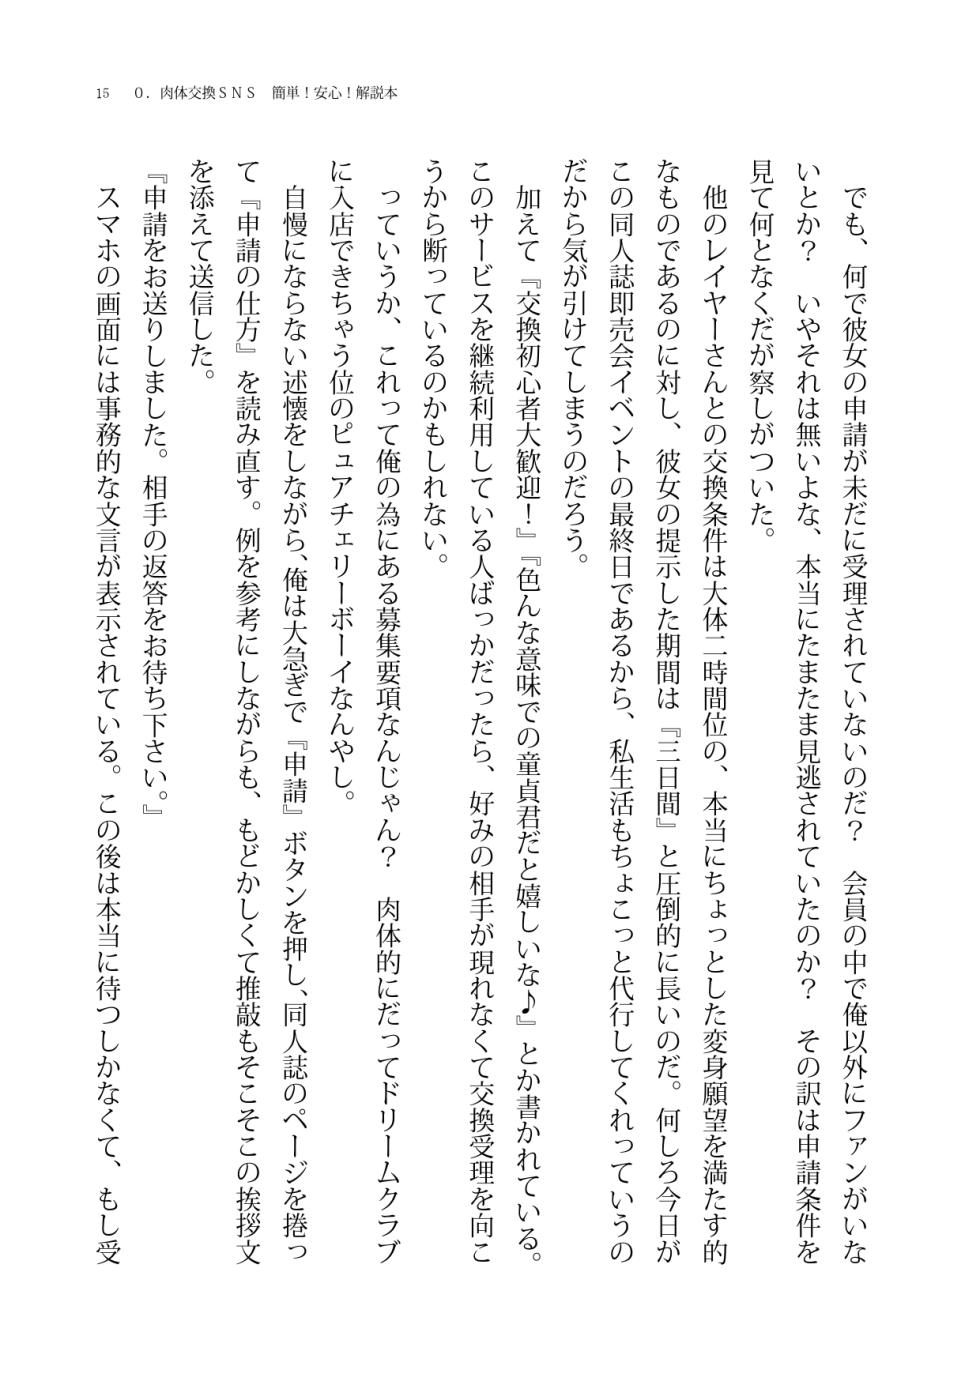 15　０．肉体交換ＳＮＳ　簡単！安心！解説本
　でも、何で彼女の申請が未だに受理されていないのだ？　会員の中で俺以外にファンがいな
いとか？　いやそれは無いよな、本当にたまたま見逃されていたのか？　その訳は申請条件を
見て何となくだが察しがついた。
　他のレイヤーさんとの交換条件は大体二時間位の、本当にちょっとした変身願望を満たす的
なものであるのに対し、彼女の提示した期間は『三日間』と圧倒的に長いのだ。何しろ今日が
この同人誌即売会イベントの最終日であるから、私生活もちょこっと代行してくれっていうの
だから気が引けてしまうのだろう。
　加えて『交換初心者大歓迎！』『色んな意味での童貞君だと嬉しいな♪』とか書かれている。
このサービスを継続利用している人ばっかだったら、好みの相手が現れなくて交換受理を向こ
うから断っているのかもしれない。
　っていうか、これって俺の為にある募集要項なんじゃん？　肉体的にだってドリームクラブ
に入店できちゃう位のピュアチェリーボーイなんやし。
　自慢にならない述懐をしながら、俺は大急ぎで『申請』ボタンを押し、同人誌のページを捲っ
て『申請の仕方』を読み直す。例を参考にしながらも、もどかしくて推敲もそこそこの挨拶文
を添えて送信した。
『申請をお送りしました。相手の返答をお待ち下さい。』
　スマホの画面には事務的な文言が表示されている。この後は本当に待つしかなくて、もし受